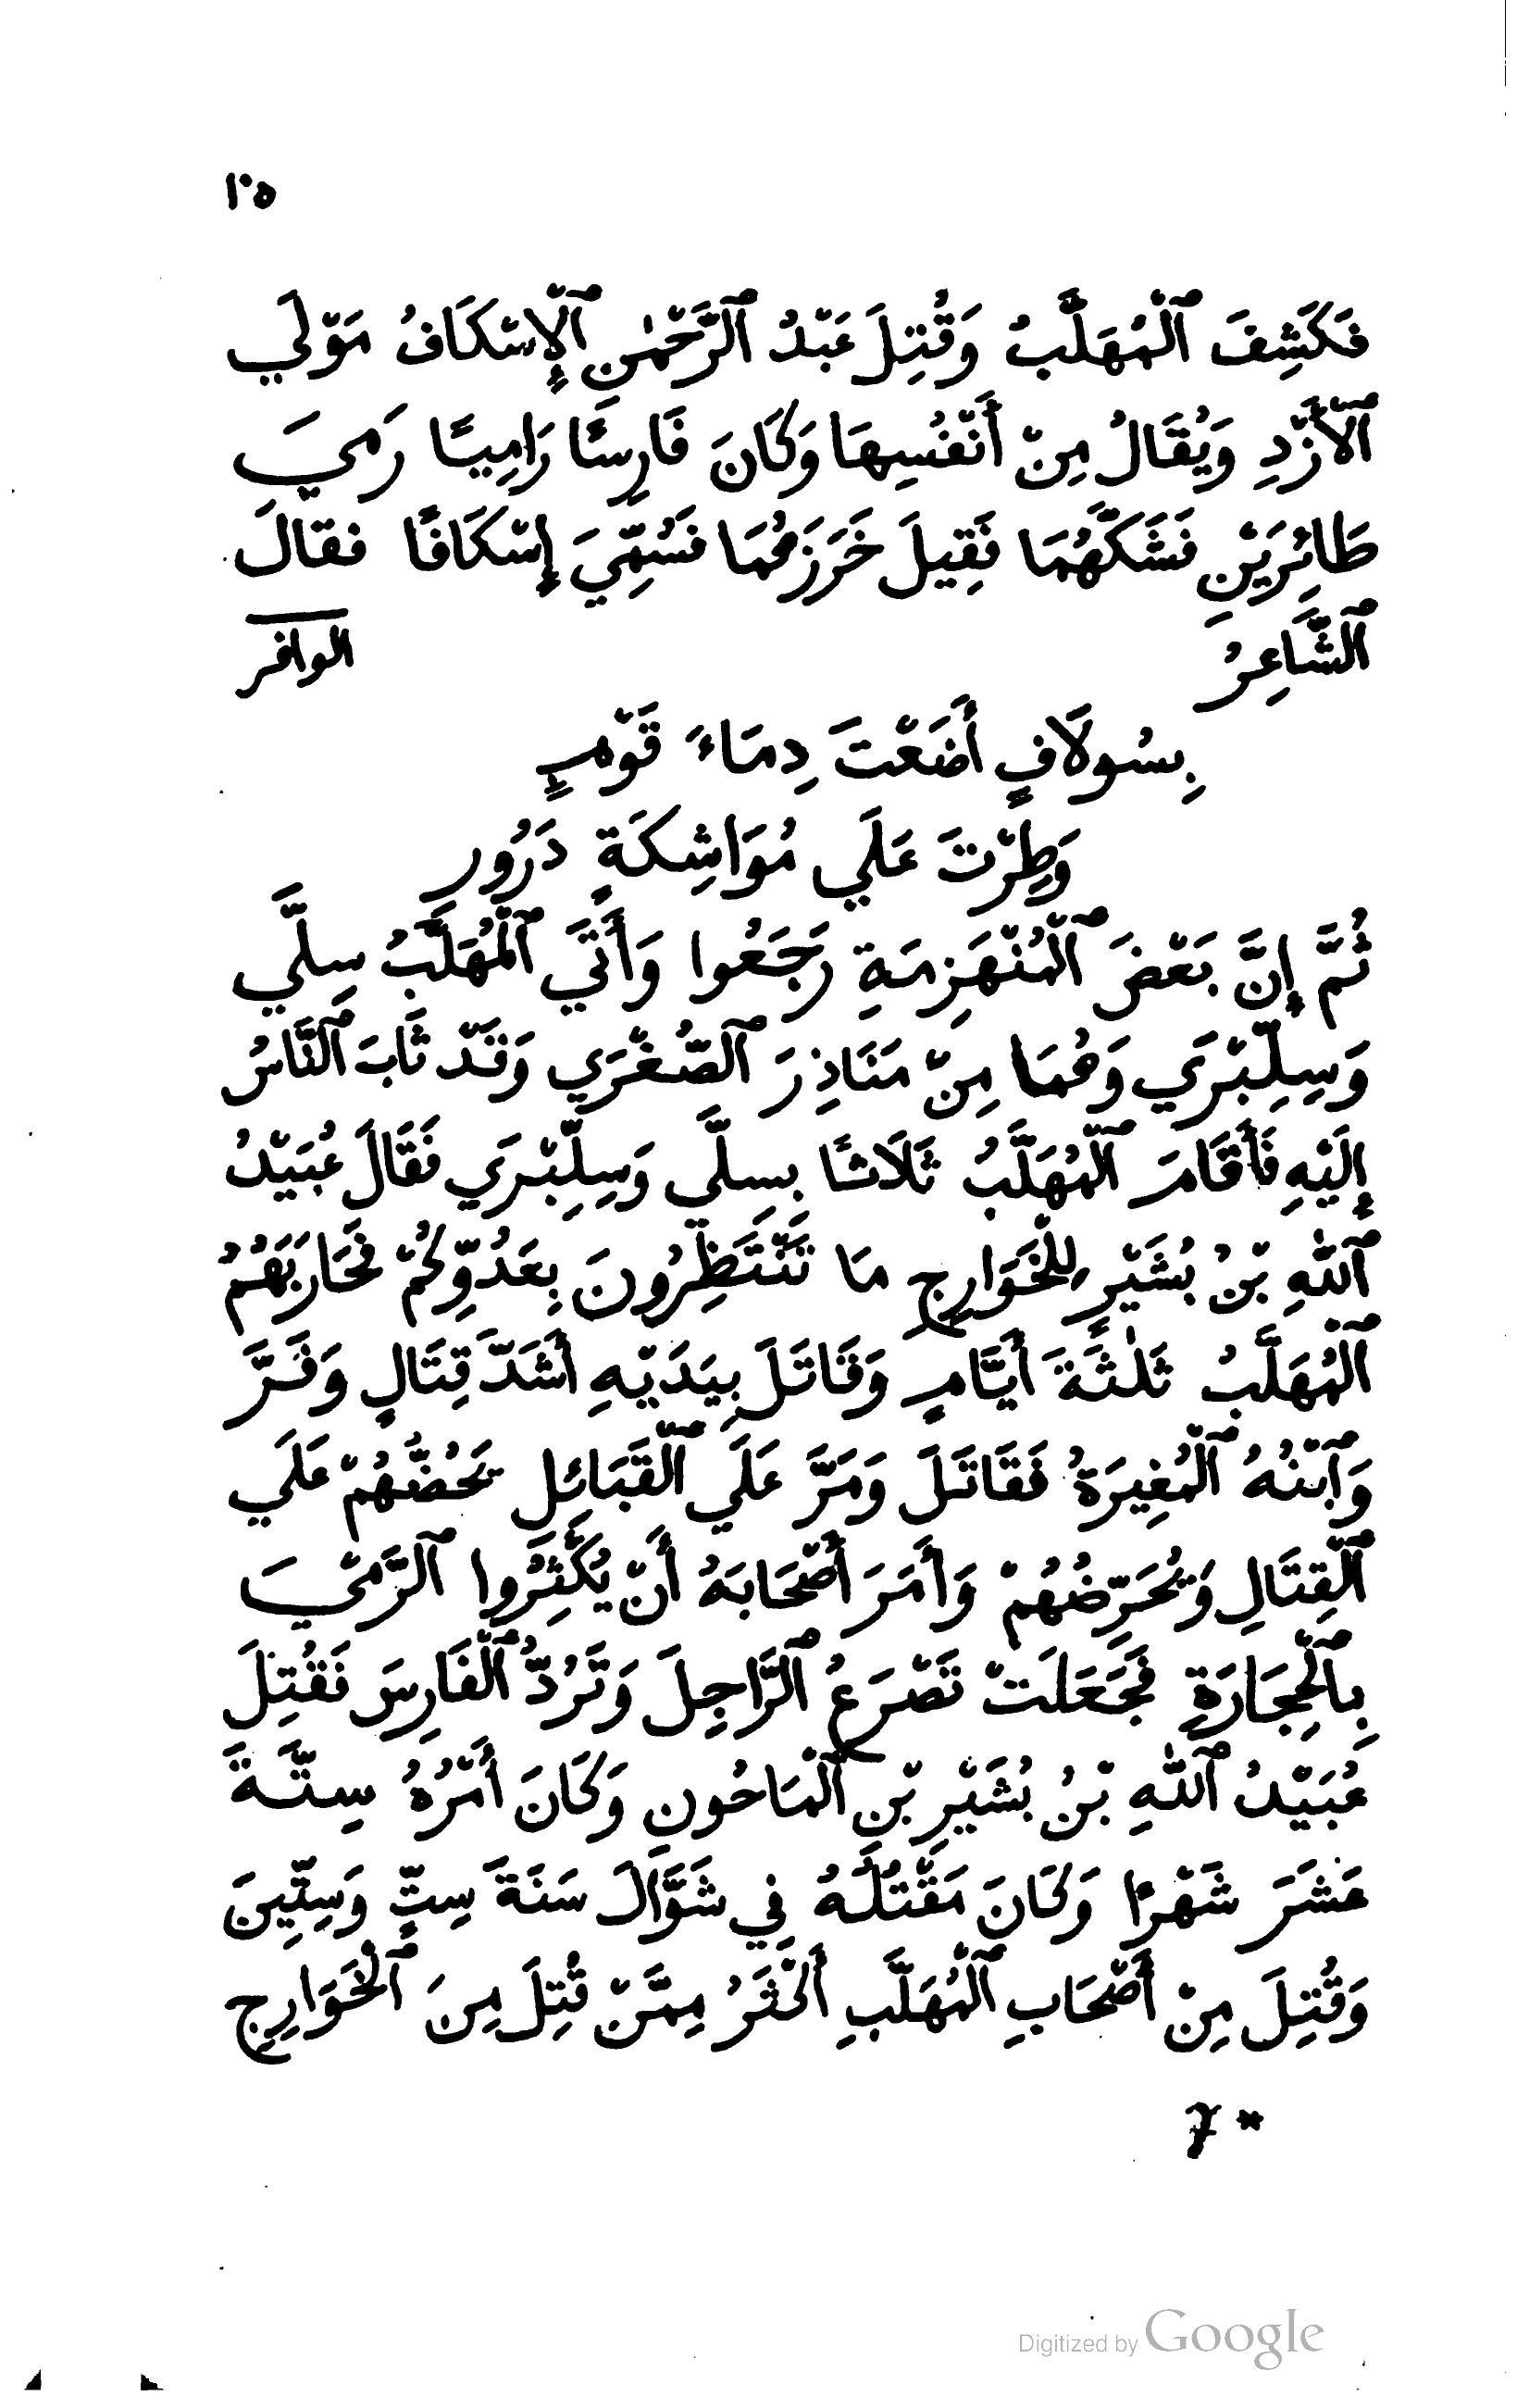 ١٠٥
فَكَشِفَ ٱلْمُهَلَّبُ وَقُتِلَ عَبْدُ ٱلرَّحْمٰنِ ٱلْإِسْكَافُ مَوْلَي
ٱلْأَزْدِ وَيُقَالُ مِنْ أَنْفُسِهَا وَكَانَ فَارِسًا رَامِيًا رَمَيَ
طَائِرَيْنِ فَشَكَّهُمَا فَقِيلَ خَرَزَهُمَا فَسُمِّيَ إِسْكَافًا فقالَ
ٱلشَّاعِرُ الوافر
بِسُولَافٍ أَضَعْتَ دِمَاءَ قَوْمٍ
وَطِرْتَ عَلَي مُوَاشِكَةٍ دَرُورِ
ثُمَّ إِنَّ بَعْضَ ٱلْمُنْهَزِمَةِ رَجَعُوا وَأَتَي ٱلْمُهَلَّبُ سِلَّي
وَسِلِّبْرَي وَهُمَا مِنْ مَنَاذِرَ ٱلصُّغْرَي وَقَدْ ثَابَ ٱلنَّاسُ
إِلَيْهِ فَأَقَامَ ٱلْمُهَلَّبُ ثَلَاثًا بِسِلَّي وَسِلِّبْرَي فَقَالَ عُبَيْدُ
ٱللّٰهِ بْنُ بُشَيْرٍ لِلْخَوَارِجِ مَا تَنْتَظِرُونَ بِعَدُوِّكُمْ فَحَارَبَهُمُ
ٱلْمُهَلَّبُ ثَلٰثَةَ أَيَّامٍ وَقَاتَلَ بِيَدَيْهِ أَشَدَّ قِتَالٍ وَفَرَّ
وَٱبْنُهُ ٱلْمُغِيرَةُ فَقَاتَلَ وَمَرَّ عَلَي ٱلْقَبَائِلِ يَحُضُّهُمْ عَلَي
ٱلْقِتَالِ وَيُحَرِّضُهُمْ وَأَمَرَ أَصْحَابَهُ أَنْ يُكْثِرُوا ٱلرَّمْيَ
بِٱلْحِجَارَةِ فَجَعَلَتْ تَصْرَعُ ٱلرَّاجِلَ وَتَرُدُّ ٱلْفَارِسَ فَقُتِلَ
عُبَيْدُ ٱللّٰهِ بْنُ بُشَيْرِ بْنِ ٱلْمَاحُونِ وَكَانَ أَمْرُهُ سِتَّةَ
عَشَرَ شَهْرًا وَكَانَ مَقْتَلُهُ فِي شَوَّالَ سَنَةَ سِتٍّ وَسِتِّينَ
وَقُتِلَ مِنْ أَصْحَابِ ٱلْمُهَلَّبِ أَكْثَرُ مِمَّنْ قُتِلَ مِنَ ٱلْخَوَارِجِ
7*
Digitized by Google